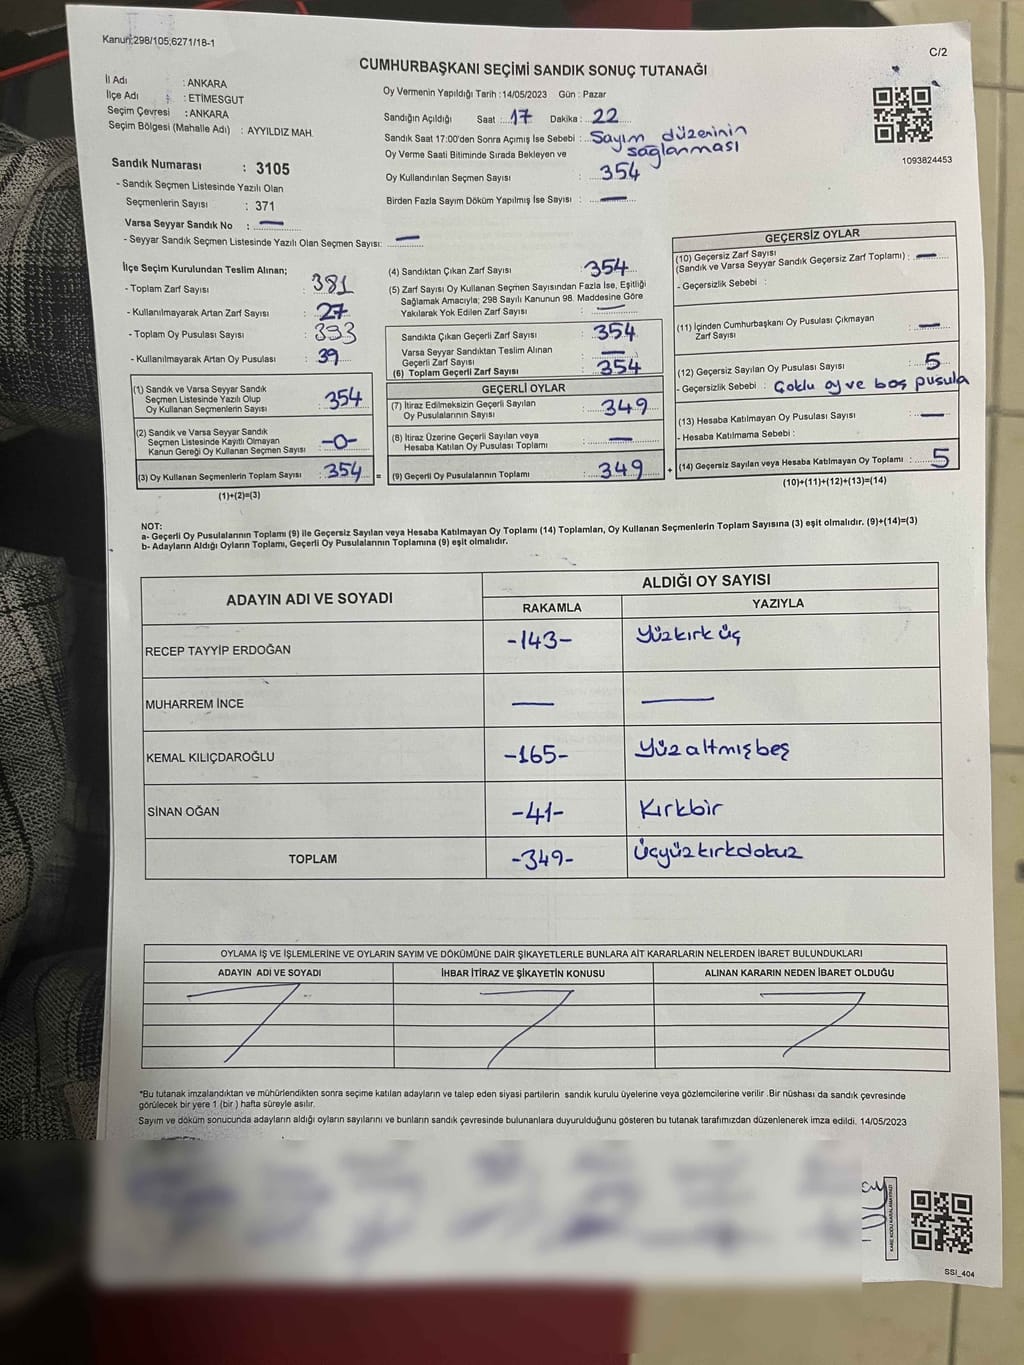 Kanun;298/105,6271/18-1
C/2
CUMHURBAŞKANI SEÇİMİ SANDIK SONUÇ TUTANAĞI
İl Adı : ANKARA
İlçe Adı : ETİMESGUT
Seçim Çevresi : ANKARA
Seçim Bölgesi (Mahalle Adı) : AYYILDIZ MAH.
Oy Vermenin Yapıldığı Tarih :14/05/2023 Gün : Pazar
Sandığın Açıldığı Saat : 17 Dakika : 22
Sandık Saat 17:00'den Sonra Açımış İse Sebebi : Sayım düzeninin sağlanması
Oy Verme Saati Bitiminde Sırada Bekleyen ve
Oy Kullandırılan Seçmen Sayısı : 354
Birden Fazla Sayım Döküm Yapılmış İse Sayısı : —
1093824453
Sandık Numarası : 3105
- Sandık Seçmen Listesinde Yazılı Olan
Seçmenlerin Sayısı : 371
Varsa Seyyar Sandık No : —
- Seyyar Sandık Seçmen Listesinde Yazılı Olan Seçmen Sayısı: —
İlçe Seçim Kurulundan Teslim Alınan;
- Toplam Zarf Sayısı : 381
- Kullanılmayarak Artan Zarf Sayısı : 27
- Toplam Oy Pusulası Sayısı : 393
- Kullanılmayarak Artan Oy Pusulası : 39
(1) Sandık ve Varsa Seyyar Sandık
Seçmen Listesinde Yazılı Olup
Oy Kullanan Seçmenlerin Sayısı : 354
(2) Sandık ve Varsa Seyyar Sandık
Seçmen Listesinde Kayıtlı Olmayan
Kanun Gereği Oy Kullanan Seçmen Sayısı : -0-
(3) Oy Kullanan Seçmenlerin Toplam Sayısı : 354 =
(1)+(2)=(3)
(4) Sandıktan Çıkan Zarf Sayısı : 354
(5) Zarf Sayısı Oy Kullanan Seçmen Sayısından Fazla İse, Eşitliği
Sağlamak Amacıyla; 298 Sayılı Kanunun 98. Maddesine Göre
Yakılarak Yok Edilen Zarf Sayısı : —
Sandıkta Çıkan Geçerli Zarf Sayısı : 354
Varsa Seyyar Sandıktan Teslim Alınan
Geçerli Zarf Sayısı : —
(6) Toplam Geçerli Zarf Sayısı : 354
GEÇERLİ OYLAR
(7) İtiraz Edilmeksizin Geçerli Sayılan
Oy Pusulalarının Sayısı : 349
(8) İtiraz Üzerine Geçerli Sayılan veya
Hesaba Katılan Oy Pusulası Toplamı : —
(9) Geçerli Oy Pusulalarının Toplamı : 349 +
GEÇERSİZ OYLAR
(10) Geçersiz Zarf Sayısı
(Sandık ve Varsa Seyyar Sandık Geçersiz Zarf Toplamı) : —
- Geçersizlik Sebebi :
(11) İçinden Cumhurbaşkanı Oy Pusulası Çıkmayan
Zarf Sayısı : —
(12) Geçersiz Sayılan Oy Pusulası Sayısı : 5
- Geçersizlik Sebebi : Çoklu oy ve boş pusula
(13) Hesaba Katılmayan Oy Pusulası Sayısı : —
- Hesaba Katılmama Sebebi :
(14) Geçersiz Sayılan veya Hesaba Katılmayan Oy Toplamı : 5
(10)+(11)+(12)+(13)=(14)
NOT:
a- Geçerli Oy Pusulalarının Toplamı (9) ile Geçersiz Sayılan veya Hesaba Katılmayan Oy Toplamı (14) Toplamları, Oy Kullanan Seçmenlerin Toplam Sayısına (3) eşit olmalıdır. (9)+(14)=(3)
b- Adayların Aldığı Oyların Toplamı, Geçerli Oy Pusulalarının Toplamına (9) eşit olmalıdır.
ADAYIN ADI VE SOYADI
ALDIĞI OY SAYISI
RAKAMLA YAZIYLA
RECEP TAYYİP ERDOĞAN -143- Yüzkırk üç
MUHARREM İNCE — —
KEMAL KILIÇDAROĞLU -165- Yüzaltmışbeş
SİNAN OĞAN -41- Kırkbir
TOPLAM -349- Üçyüzkırkdokuz
OYLAMA İŞ VE İŞLEMLERİNE VE OYLARIN SAYIM VE DÖKÜMÜNE DAİR ŞİKAYETLERLE BUNLARA AİT KARARLARIN NELERDEN İBARET BULUNDUKLARI
ADAYIN ADI VE SOYADI İHBAR İTİRAZ VE ŞİKAYETİN KONUSU ALINAN KARARIN NEDEN İBARET OLDUĞU
*Bu tutanak imzalandıktan ve mühürlendikten sonra seçime katılan adayların ve talep eden siyasi partilerin sandık kurulu üyelerine veya gözlemcilerine verilir .Bir nüshası da sandık çevresinde
görülecek bir yere 1 (bir ) hafta süreyle asılır.
Sayım ve döküm sonucunda adayların aldığı oyların sayılarını ve bunların sandık çevresinde bulunanlara duyurulduğunu gösteren bu tutanak tarafımızdan düzenlenerek imza edildi. 14/05/2023
KARE KODU KARALAMAYINIZ!
SSI_404